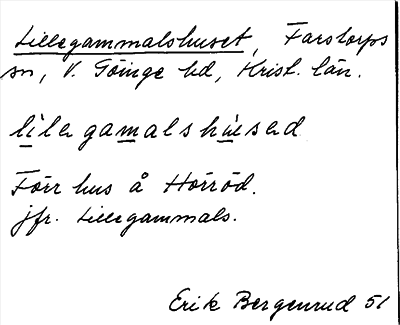 Lillegammalshuset, Farstorps
sn, V. Göinge hd, Krist. län.
lilegamalshused
Förr hus å Horröd.
jfr. Lillegammals.
Erik Bergenrud 51